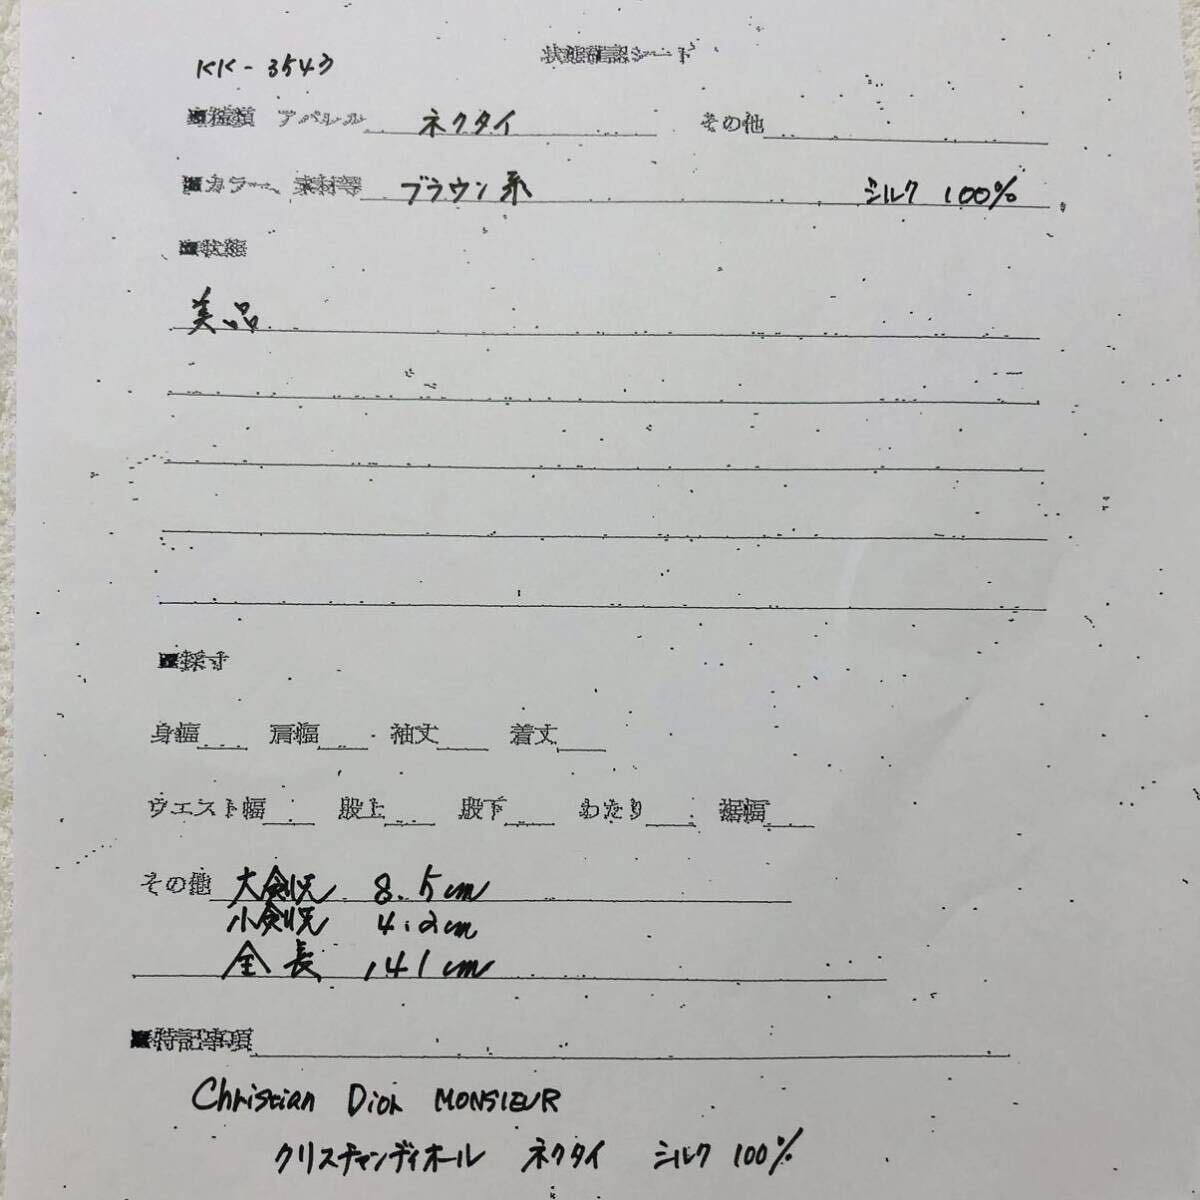 KK-3543
状態確認シート
■種類 アパレル ネクタイ その他
■カラー、素材等 ブラウン系 シルク 100%
■状態
美品
■採寸
身幅 肩幅 袖丈 着丈
ウエスト幅 股上 股下 わたり 裾幅
その他 大剣 8.5cm
小剣 4.2cm
全長 141cm
■特記事項
Christian Dior MONSIEUR
クリスチャンディオール ネクタイ シルク 100%